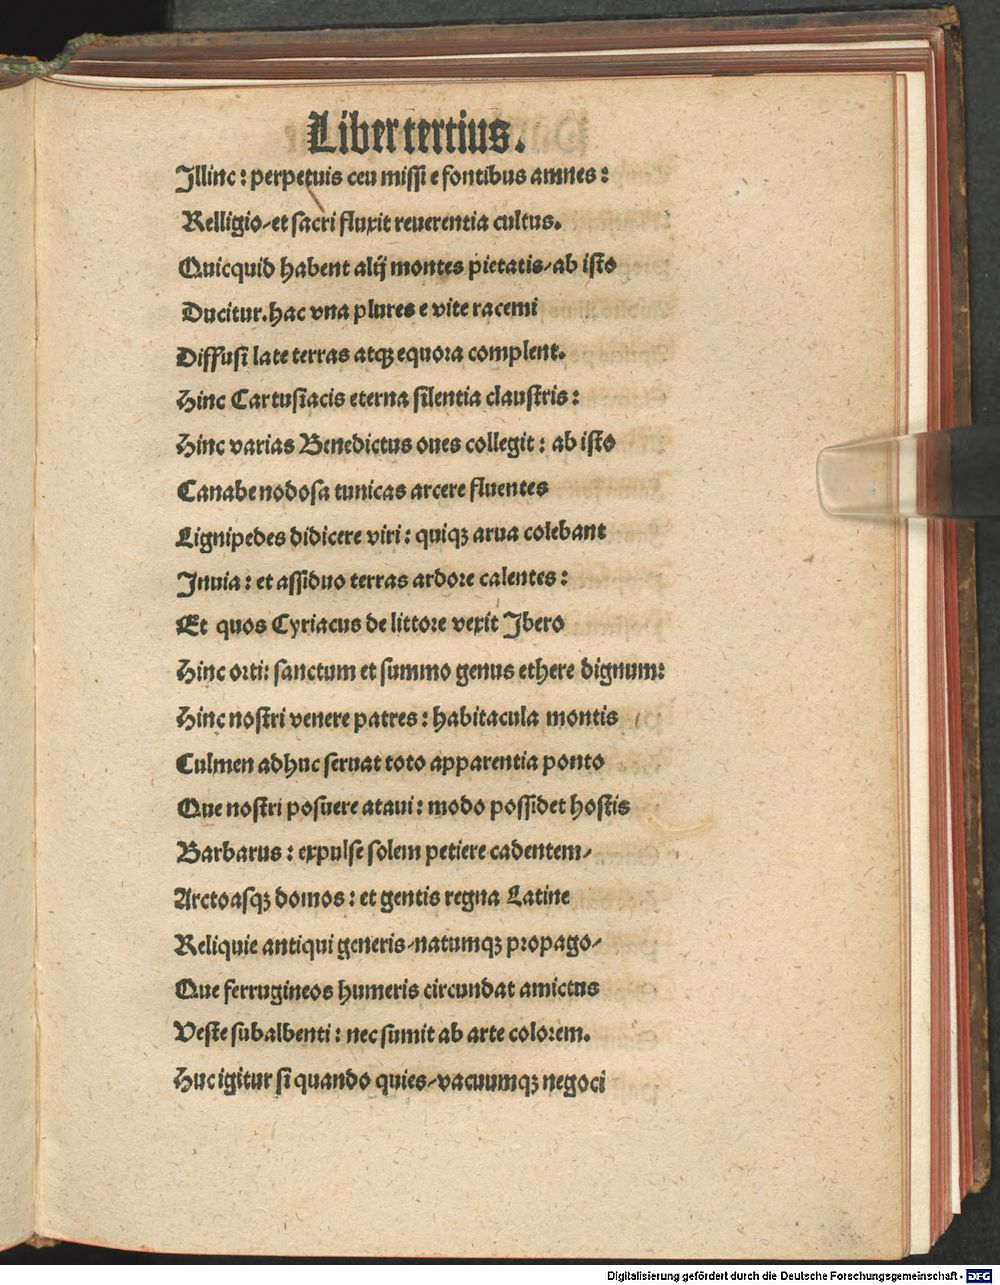 Liber tertius.
Illinc : perpetuis ceu missi e fontibus amnes :
Relligio/et sacri fluxit reuerentia cultus.
Quicquid habent alij montes pietatis/ab isto
Ducitur.hac vna plures e vite racemi
Diffusi late terras atqꝫ equora complent.
Hinc Cartusiacis eterna silentia claustris :
Hinc varias Benedictus oues collegit : ab isto
Canabe nodosa tunicas arcere fluentes
Lignipedes didicere viri : quiqꝫ arua colebant
Inuia : et assiduo terras ardore calentes :
Et quos Cyriacus de littore vexit Ibero
Hinc orti: sanctum et summo genus ethere dignum:
Hinc nostri venere patres : habitacula montis
Culmen adhuc seruat toto apparentia ponto
Que nostri posuere ataui : modo possidet hostis
Barbarus : expulse solem petiere cadentem/
Arctoasqꝫ domos : et gentis regna Latine
Reliquie antiqui generis/natumqꝫ propago/
Que ferrugineos humeris circundat amictus
Veste subalbenti : nec sumit ab arte colorem.
Huc igitur si quando quies/vacuumqꝫ negoci
Digitalisierung gefördert durch die Deutsche Forschungsgemeinschaft - DFG